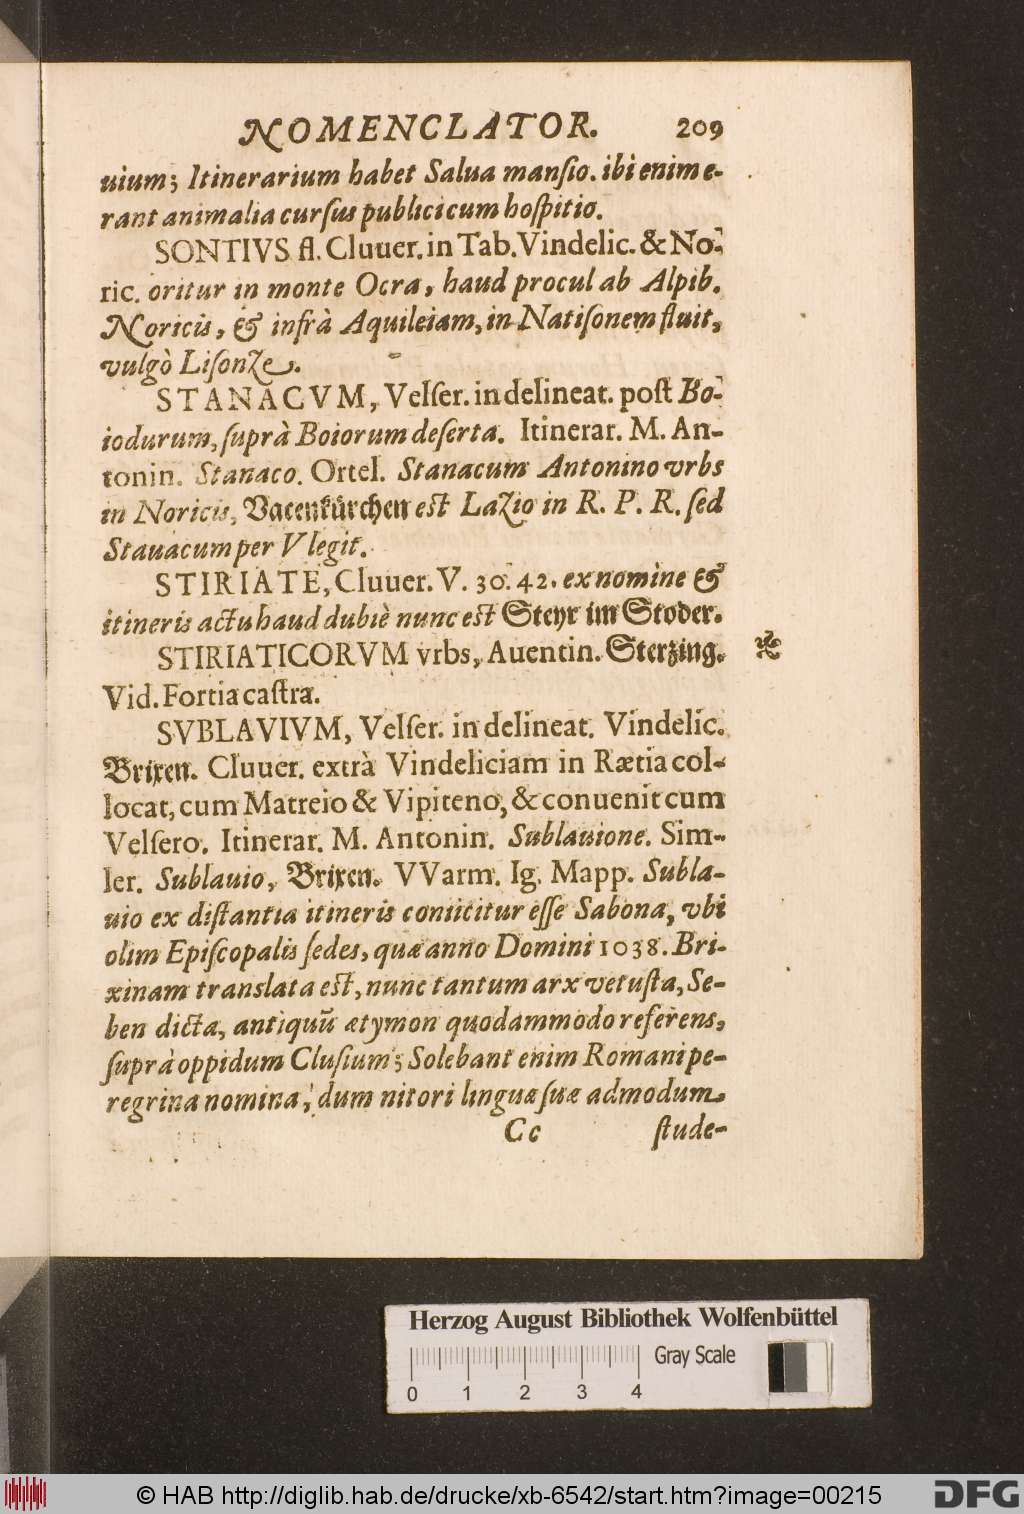 NOMENCLATOR. 209
uium; Itinerarium habet Salua manſio. ibi enim e-
rant animalia curſus publici cum hoſpitio.
SONTIVS fl. Cluuer. in Tab. Vindelic. & No-
ric. oritur in monte Ocra, haud procul ab Alpib.
Noricis, & infrà Aquileiam, in Natiſonem fluit,
vulgò Liſonze.
STANACVM, Velſer. in delineat. poſt Bo-
iodurum, ſuprà Boiorum deſerta. Itinerar. M. An-
tonin. Stanaco. Ortel. Stanacum Antonino vrbs
in Noricis, Vatenkürchen eſt Lazio in R. P. R. ſed
Stauacum per V legit.
STIRIATE, Cluuer. V. 30. 42. ex nomine &
itineris actu haud dubiè nunc eſt Steyr im Stoder.
STIRIATICORVM vrbs, Auentin. Sterzing.
Vid. Fortia caſtra.
SVBLAVIVM, Velſer. in delineat. Vindelic.
Brixen. Cluuer. extrà Vindeliciam in Rætia col-
locat, cum Matreio & Vipiteno, & conuenit cum
Velſero. Itinerar. M. Antonin. Sublauione. Sim-
ler. Sublauio, Brixen. VVarm. Ig. Mapp. Subla-
uio ex diſtantia itineris coniicitur eſſe Sabona, vbi
olim Epiſcopalis ſedes, quæ anno Domini 1038. Bri-
xinam translata eſt, nunc tantum arx vetuſta, Se-
ben dicta, antiquū ætymon quodammodo referens,
ſuprà oppidum Cluſium; Solebant enim Romani pe-
regrina nomina, dum nitori linguæ ſuæ admodum
Cc ſtude-
Herzog August Bibliothek Wolfenbüttel
Gray Scale
0 1 2 3 4
© HAB http://diglib.hab.de/drucke/xb-6542/start.htm?image=00215
DFG